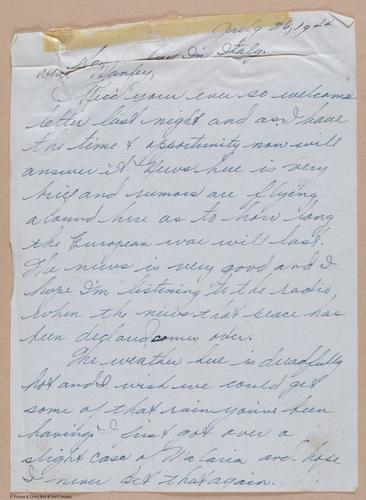 July 26, 1944
Somewhere in Italy.
Dear Stanley,
Rec'd your ever so welcome
letter last night and as I have
the time & opportunity now will
answer it. News here is very
brief and rumors are flying
around here as to how long
the European war will last.
The news is very good and I
hope I'm listening to the radio
when the news that peace has
been declared comes over.
The weather here is dreadfully
hot and I wish we could get
some of that rain you've been
having. I just got over a
slight case of Malaria and hope
I never get that again.